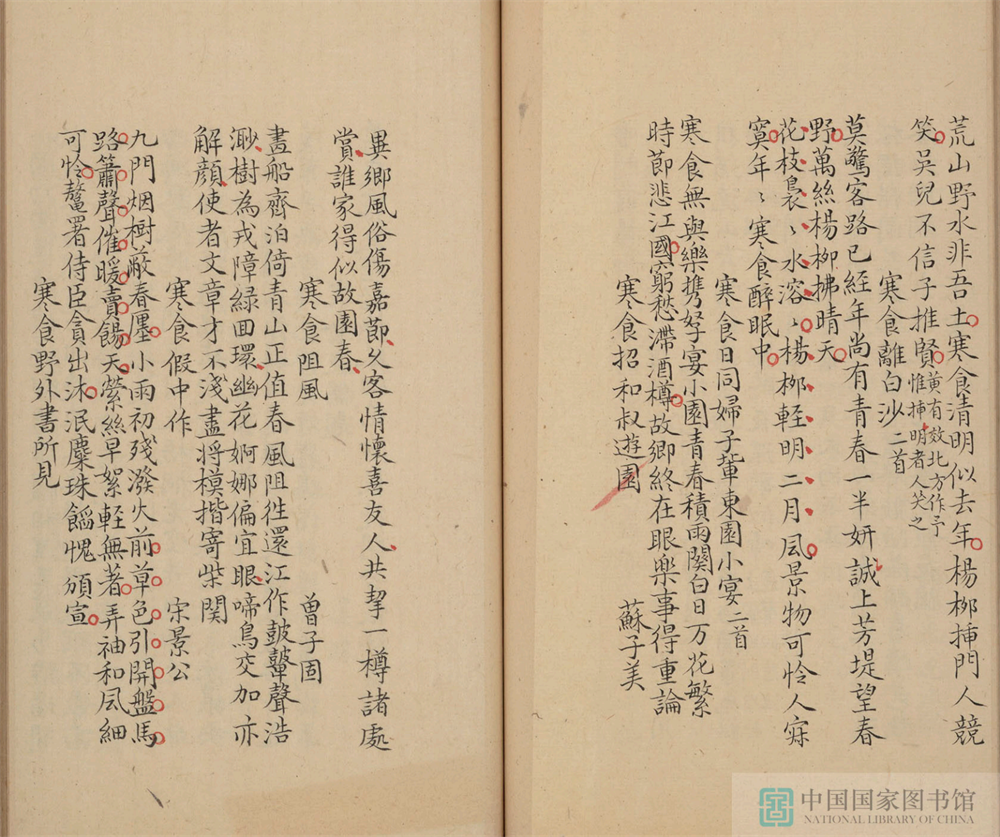 荒山野水非吾土寒食清明似去年楊柳揷門人競
笑吳兒不信子推賢黄有效北方作予
惟揷明者人笑之
寒食離白沙二首
莫驚客路已經年尚有青春一半妍誠上芳堤望春
野萬絲楊柳拂晴天
花枝裊〻水溶〻楊柳輕明二月風景物可怜人寂
寞年〻寒食醉眠中
寒食日同婦子輩東園小宴二首
寒食無與樂携孥宴小園青春積雨闋白日万花繁
時節悲江國窮愁滯酒樽故鄉終在眼樂事得重論
寒食招和叔遊園 蘇子美
異鄉風俗傷嘉節久客情懷喜友人共挈一樽諸處
賞誰家得似故園春
寒食阻風 曾子固
畫船齊泊倚青山正值春風阻徃還江作皷鼙聲浩
渺樹為戎障綠回環幽花婀娜偏宜眼啼鳥交加亦
解顔使者文章才不淺盡將模揩寄柴関
寒食假中作 宋景公
九門烟樹蔽春㕓小雨初殘潑火前草色引開盤馬
路簫聲催暖賣餳天縈絲早絮輕無著弄袖和風細
可怜鼇署侍臣貪出沐泯麋珠餡愧頒宣
寒食野外書所見
中国国家图书馆
NATIONAL LIBRARY OF CHINA